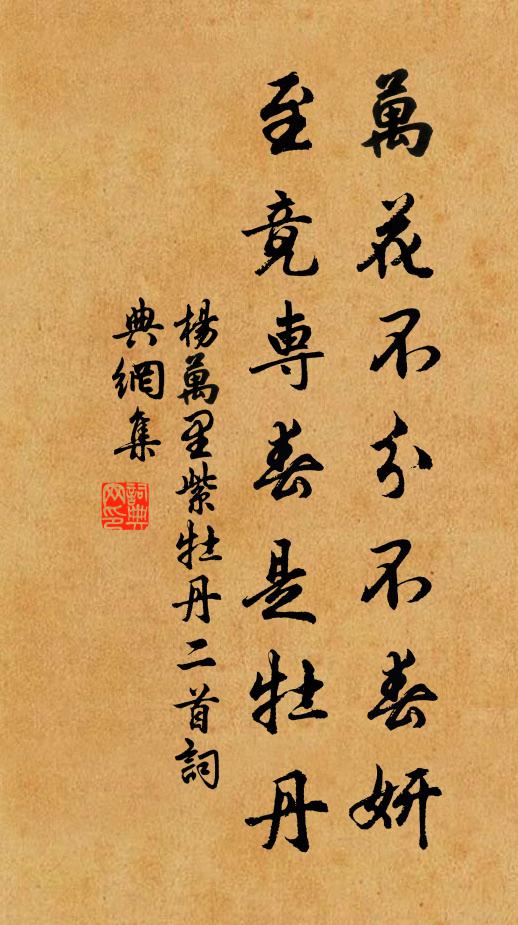 萬花不分不春妍
至竟專春是牡丹
楊萬里紫牡丹二首詞
典網集
詞典
网印